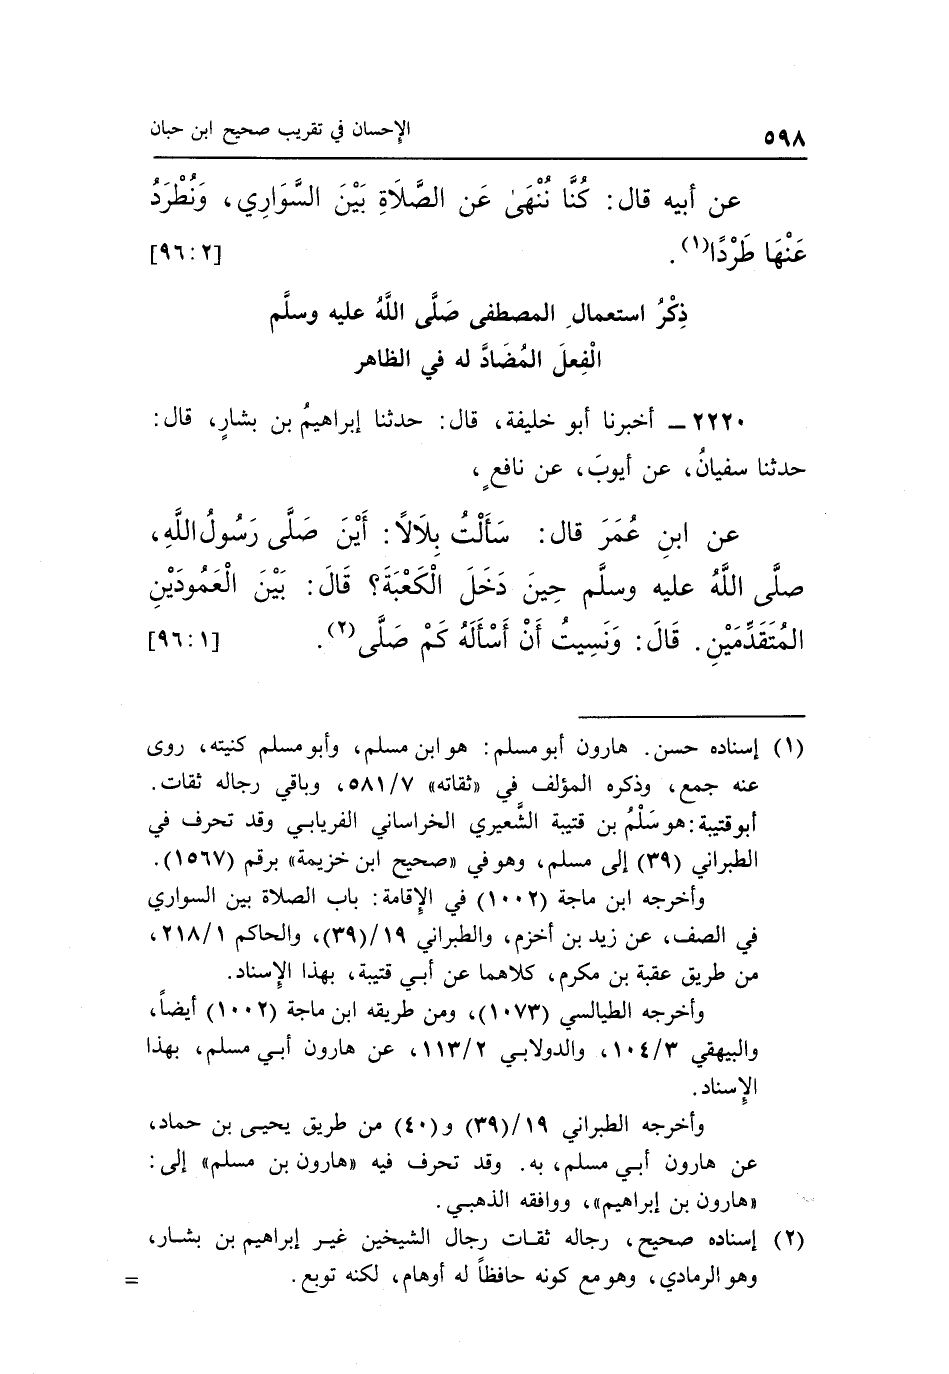 ٥٩٨ الإحسان في تقريب صحيح ابن حبان
عن أبيه قال: كُنَّا نُنْهَىٰ عَنِ الصَّلَاةِ بَيْنَ السَّوَارِي، وَنُطْرَدُ
عَنْهَا طَرْدًا(١). [٢:٩٦]
ذِكْرُ استعمالِ المصطفى صَلَّى اللَّهُ عليه وسلَّم
الْفِعلَ المُضَادَّ له في الظاهر
٢٢٢٠ ـ أخبرنا أبو خليفة، قال: حدثنا إبراهيمُ بن بشارٍ، قال:
حدثنا سفيانُ، عن أيوبَ، عن نافعٍ،
عن ابنِ عُمَرَ قال: سَأَلْتُ بِلَالًا: أَيْنَ صَلَّى رَسُولُ اللَّهِ،
صلَّى اللَّهُ عليه وسلَّم حِينَ دَخَلَ الْكَعْبَةَ؟ قَالَ: بَيْنَ الْعَمُودَيْنِ
المُتَقَدِّمَيْنِ. قَالَ: وَنَسِيتُ أَنْ أَسْأَلَهُ كَمْ صَلَّى(٢). [١:٩٦]
(١) إسناده حسن. هارون أبو مسلم: هو ابن مسلم، وأبو مسلم كنيته، روى
عنه جمع، وذكره المؤلف في «ثقاته» ٥٨١/٧، وباقي رجاله ثقات.
أبو قتيبة: هو سَلْمُ بن قتيبة الشَّعيري الخراساني الفريابي وقد تحرف في
الطبراني (٣٩) إلى مسلم، وهو في «صحيح ابن خزيمة» برقم (١٥٦٧).
وأخرجه ابن ماجة (١٠٠٢) في الإقامة: باب الصلاة بين السواري
في الصف، عن زيد بن أخزم، والطبراني ١٩/(٣٩)، والحاكم ٢١٨/١،
من طريق عقبة بن مكرم، كلاهما عن أبي قتيبة، بهذا الإسناد.
وأخرجه الطيالسي (١٠٧٣)، ومن طريقه ابن ماجة (١٠٠٢) أيضاً،
والبيهقي ١٠٤/٣، والدولابي ١١٣/٢، عن هارون أبي مسلم، بهذا
الإسناد.
وأخرجه الطبراني ١٩/(٣٩) و(٤٠) من طريق يحيى بن حماد،
عن هارون أبي مسلم، به. وقد تحرف فيه «هارون بن مسلم» إلى:
«هارون بن إبراهيم»، ووافقه الذهبي.
(٢) إسناده صحيح، رجاله ثقات رجال الشيخين غير إبراهيم بن بشار،
وهو الرمادي، وهو مع كونه حافظاً له أوهام، لكنه توبع. =